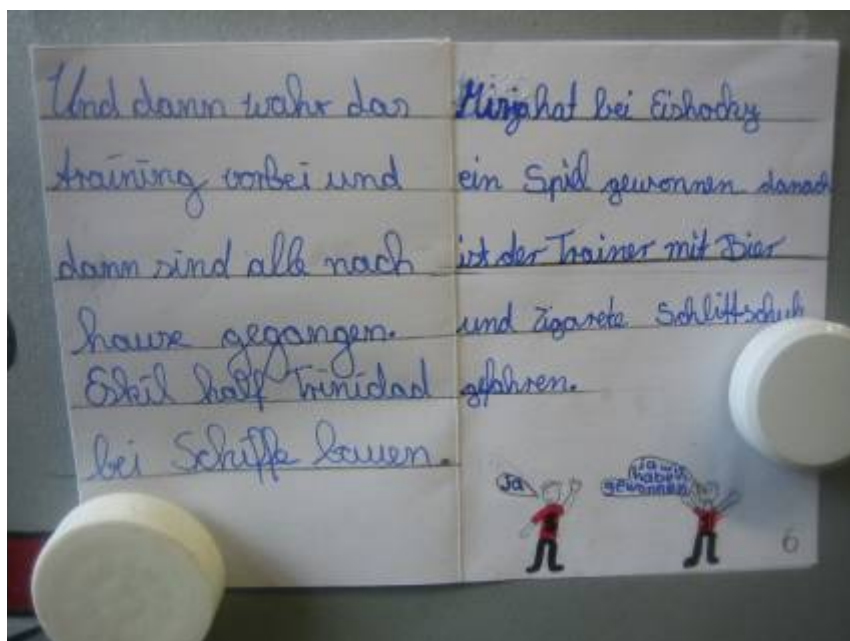 Und dann wahr das
training vorbei und
dann sind alle nach
hause gegangen.
Eskil half Trinidad
bei Schiffe bauen.
Mirja hat bei Eishocky
ein Spil gewonnen danach
ist der Trainer mit Bier
und Zigarete Schlittschuh
gefahren.
Ja
Ja wir
haben
gewonnen
6